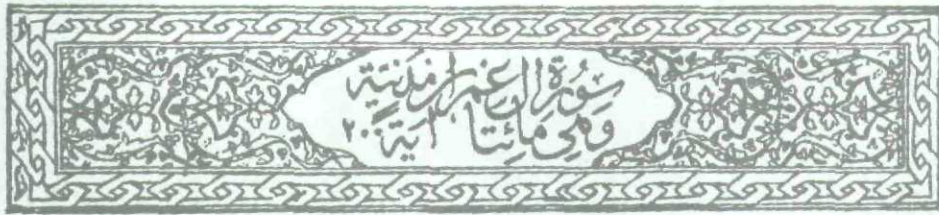 سورة آل عمران مدنية
وهي مائتا آية ٢٠٠